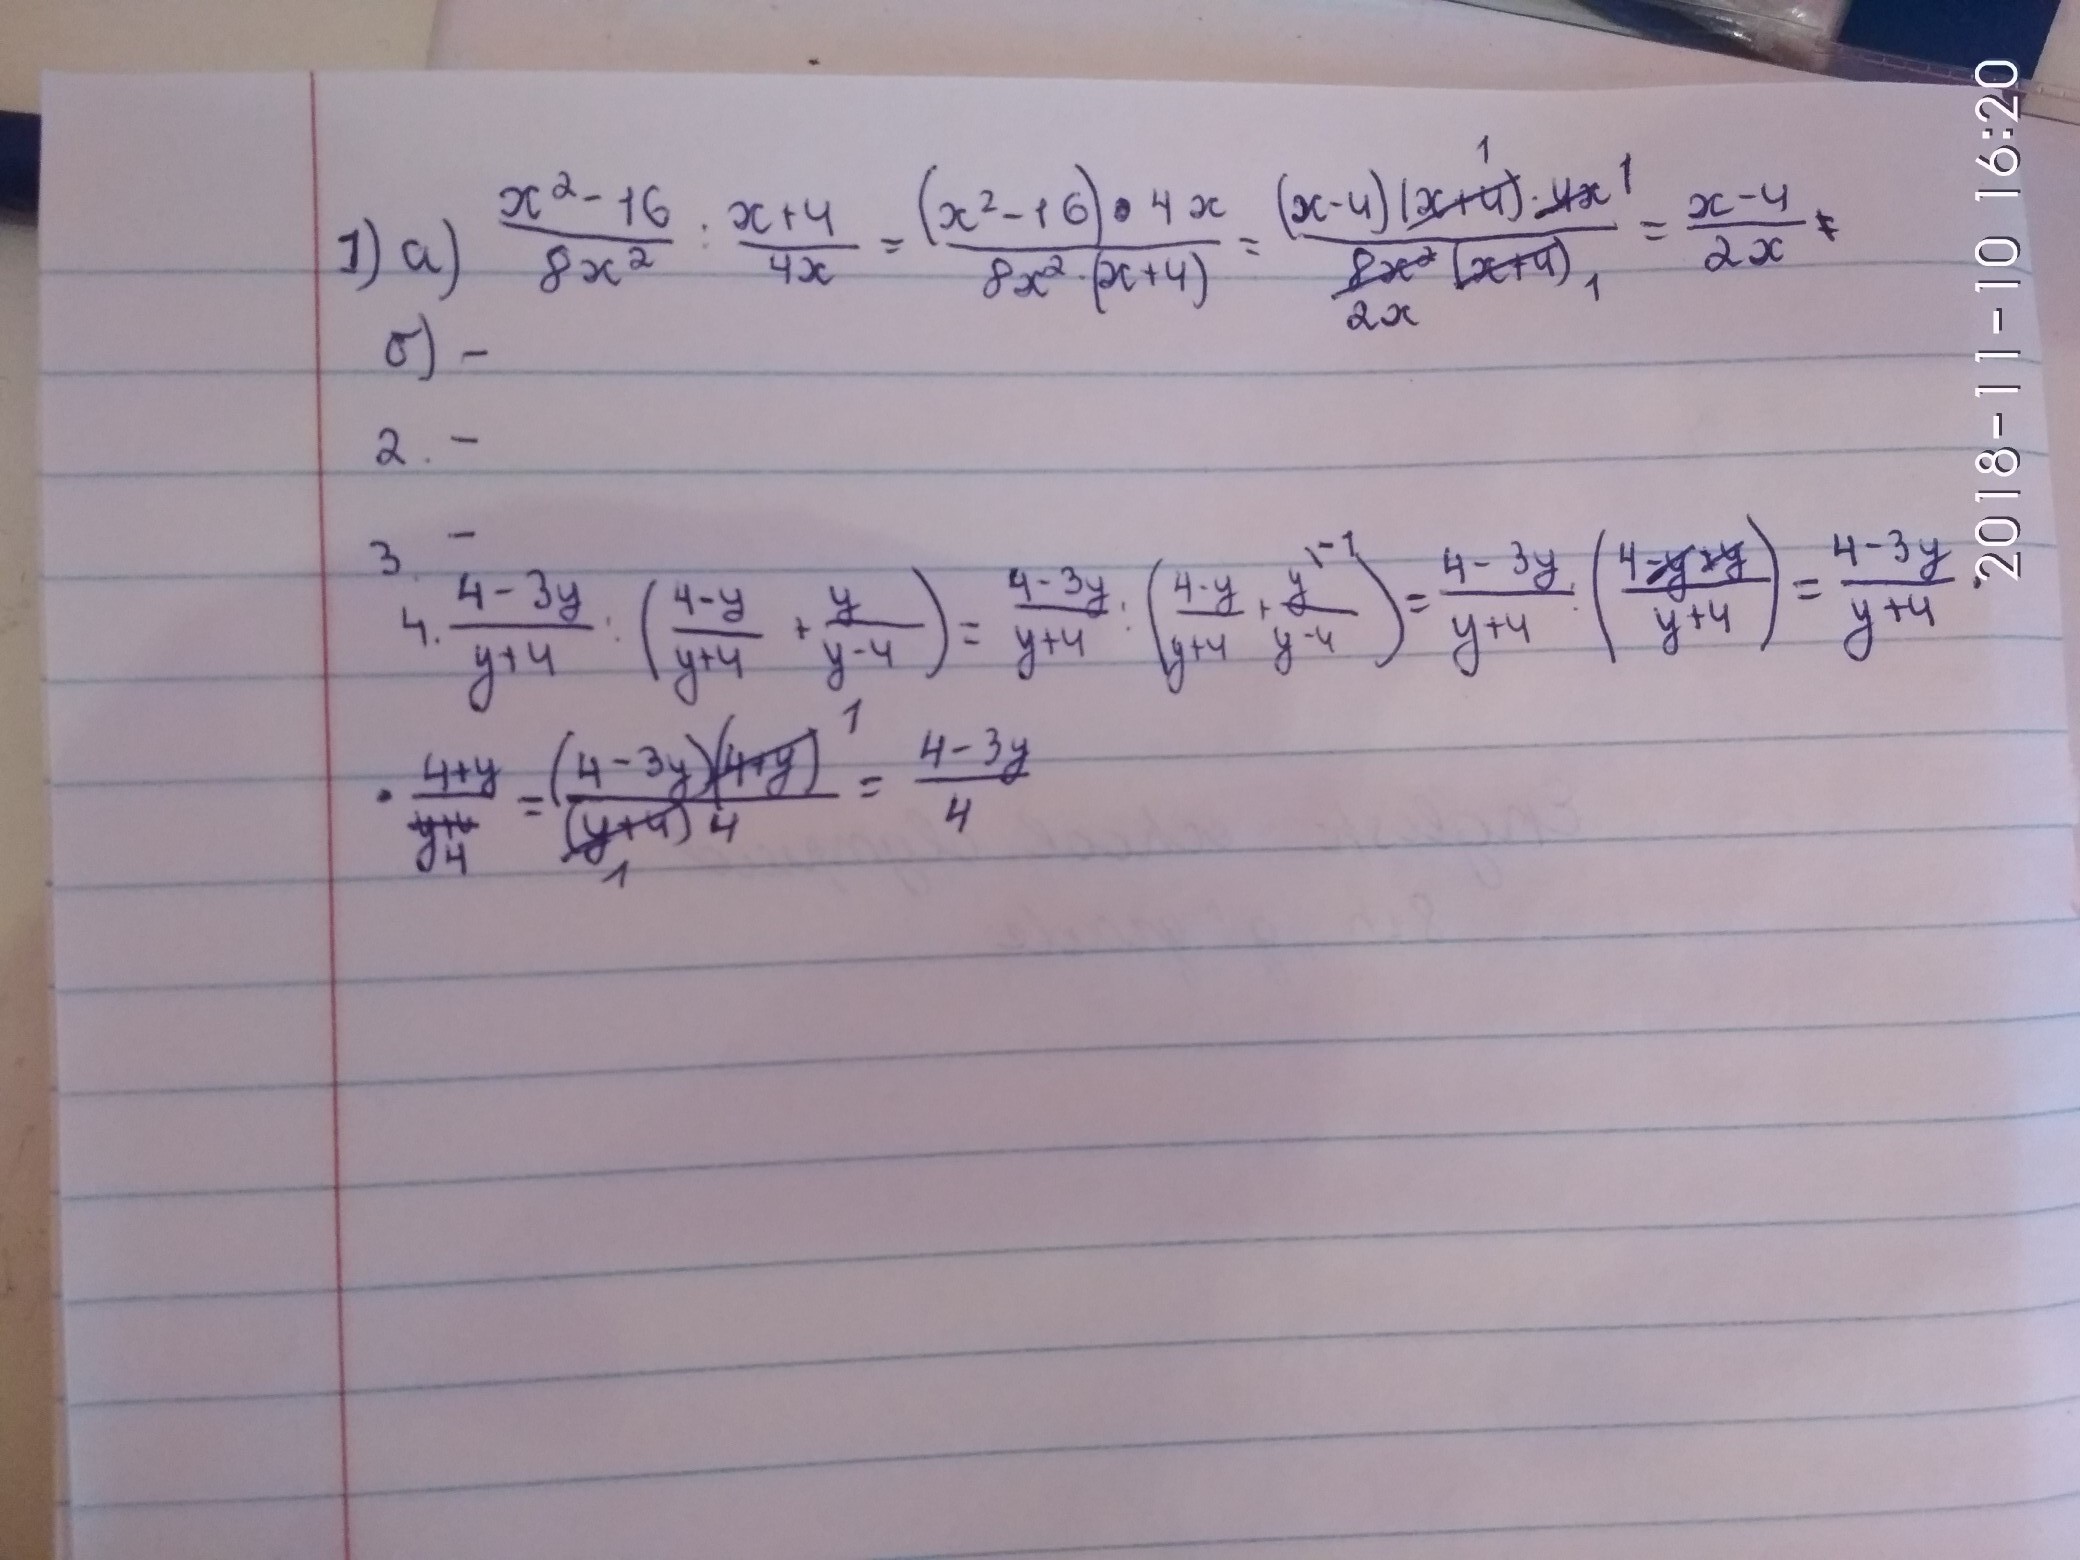 1) а) x²-16/8x² : x+4/4x = (x²-16)·4x/8x²·(x+4) = (x-4)(x+4)·4x/8x²(x+4) 1 1 2x 1 = x-4/2x
б) -
2. -
3. -
4. 4-3y/y+4 : (4-y/y+4 + y/y-4) = 4-3y/y+4 : (4-y/y+4 + y\-1/y-4) = 4-3y/y+4 : (4-y+y/y+4) = 4-3y/y+4 ·
· 4+y/y+4 4 = (4-3y)(4+y) 1/(y+4) 4 1 = 4-3y/4
2018-11-10 16:20